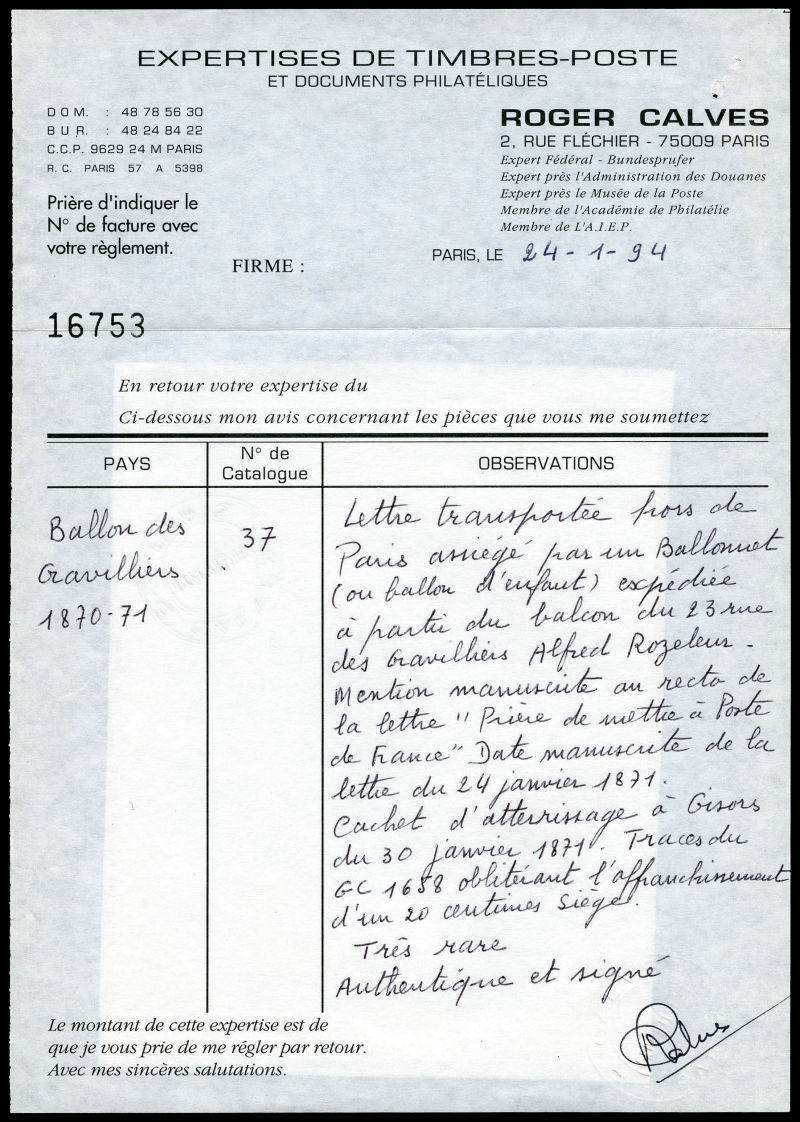 EXPERTISES DE TIMBRES-POSTE
ET DOCUMENTS PHILATÉLIQUES
DOM. : 48 78 56 30
BUR. : 48 24 84 22
C.C.P. 9629 24 M PARIS
R. C. PARIS 57 A 5398
Prière d'indiquer le
N° de facture avec
votre règlement.
ROGER CALVES
2, RUE FLÉCHIER - 75009 PARIS
Expert Fédéral - Bundesprufer
Expert près l'Administration des Douanes
Expert près le Musée de la Poste
Membre de l'Académie de Philatélie
Membre de L'A.I.E.P.
FIRME :
PARIS, LE 24-1-94
16753
En retour votre expertise du
Ci-dessous mon avis concernant les pièces que vous me soumettez
PAYS
N° de
Catalogue
OBSERVATIONS
Ballon des
Gravilliers
1870-71
37
Lettre transportée hors de
Paris assiégé par un Ballonnet
(ou ballon d'enfant) expédiée
à partir du balcon du 23 rue
des Gravilliers Alfred Rozeleur -
Mention manuscrite au recto de
la lettre "Prière de mettre à Poste
de France" Date manuscrite de la
lettre du 24 janvier 1871.
Cachet d'atterrissage à Gisors
du 30 janvier 1871. Traces du
GC 1658 oblitérant l'affranchissement
d'un 20 centimes Siège.
Très rare
Authentique et signé
Calves
Le montant de cette expertise est de
que je vous prie de me régler par retour.
Avec mes sincères salutations.